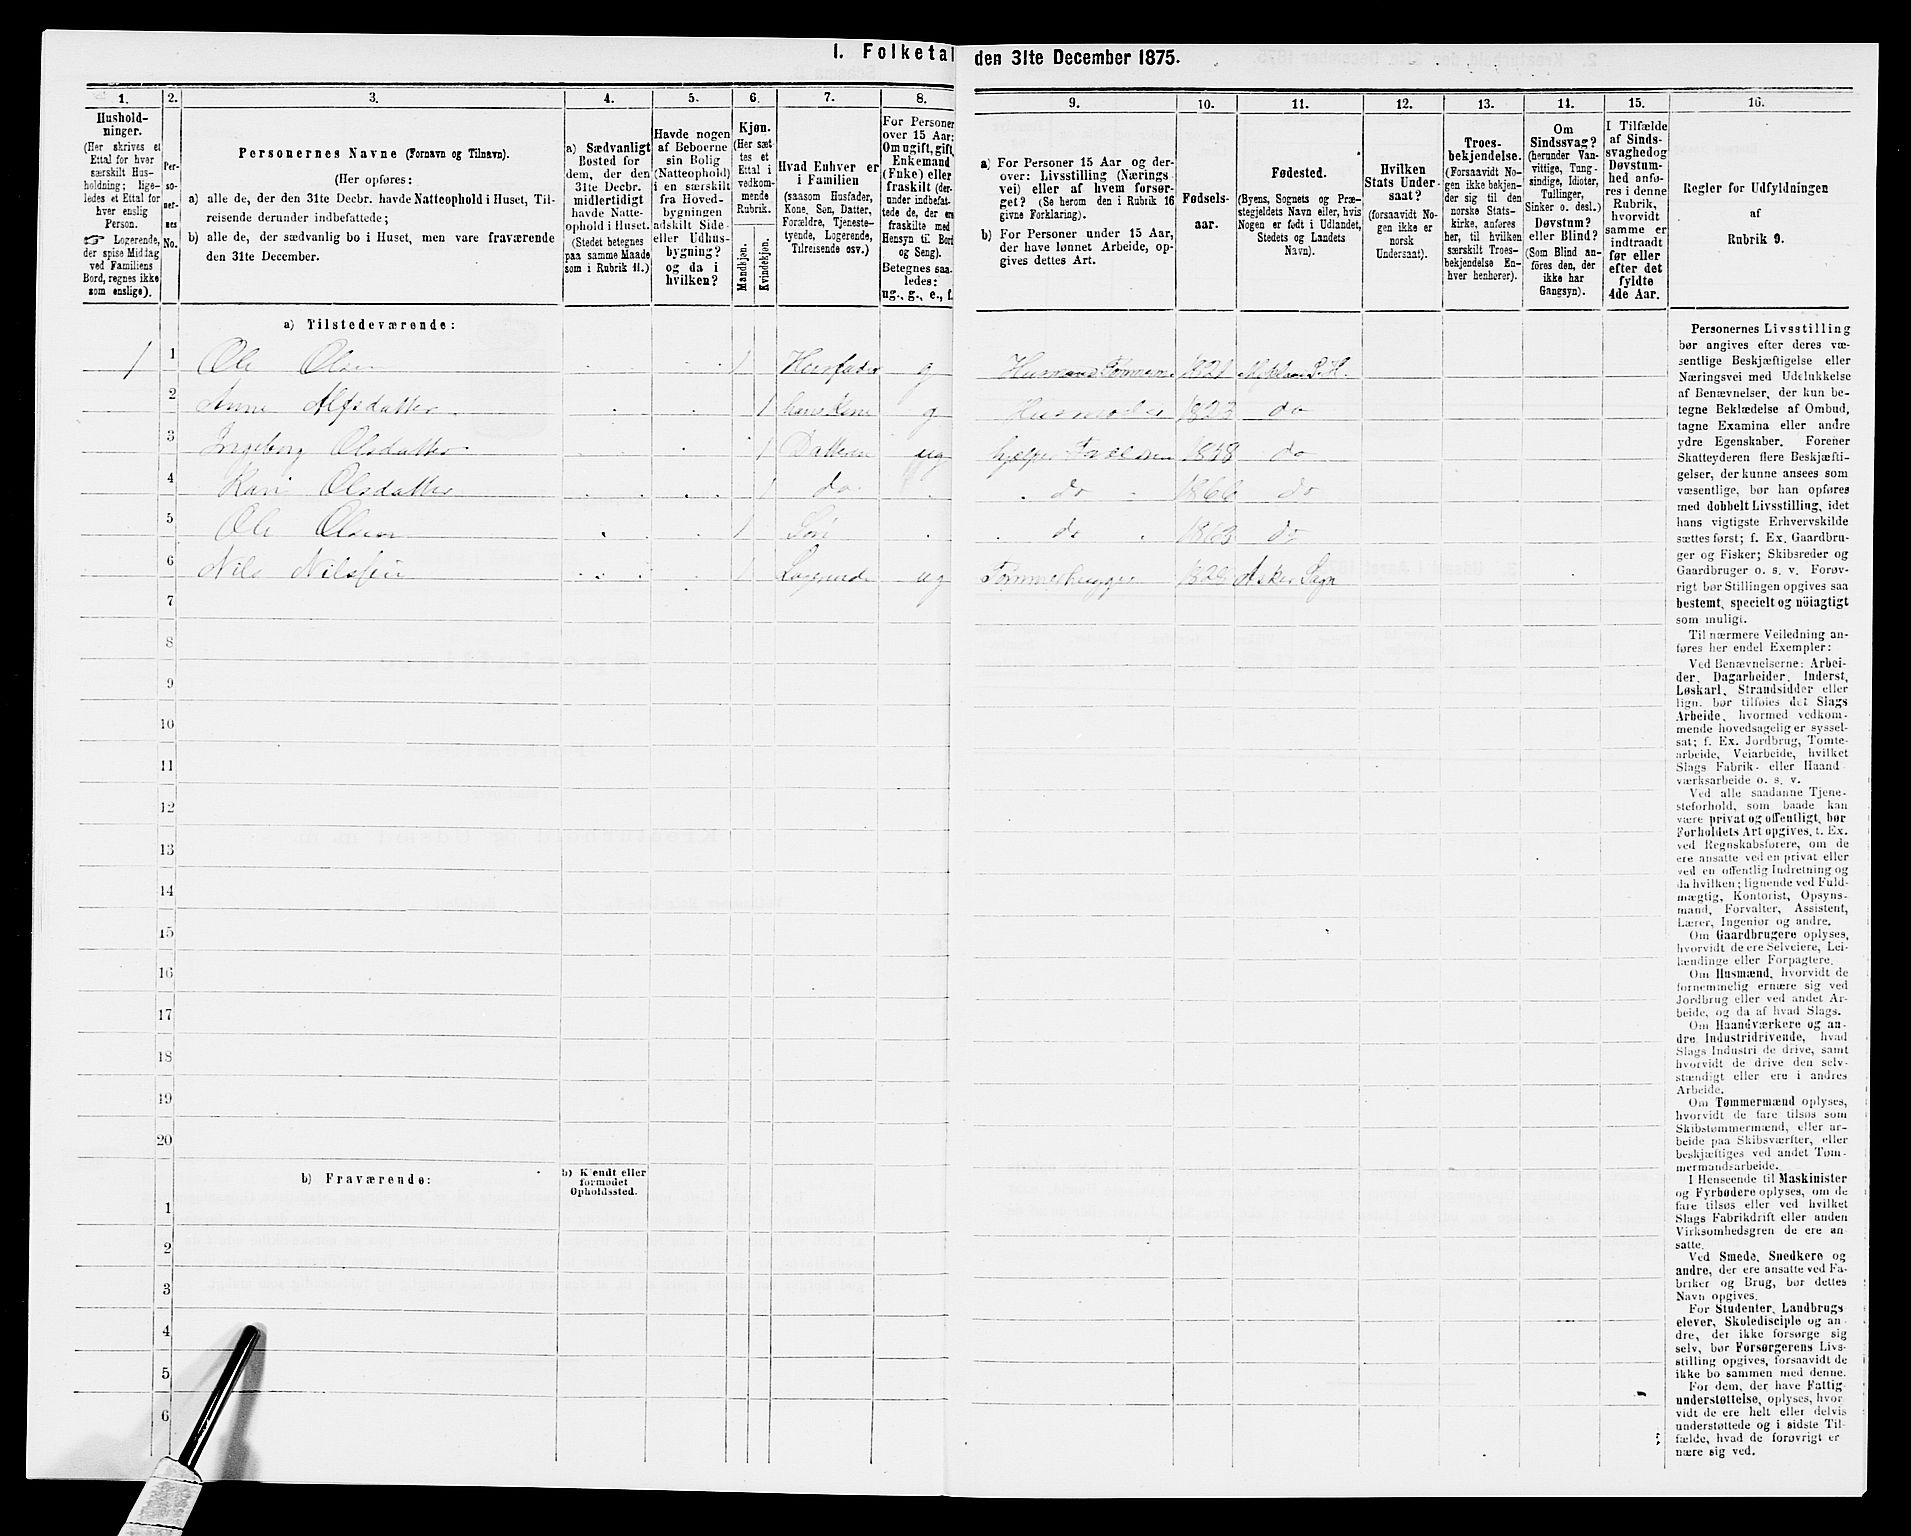 1. Folketal den 31te December 1875.
1. 2. 3. 4. 5. 6. 7. 8. 9. 10. 11. 12. 13. 14. 15. 16.
Hushold-
ninger.
(Her skrives et
Ettal for hver
særskilt Hus-
holdning; lige-
ledes et Ettal for
hver enslig
Person.
☞ Logerende,
der spise Middag
ved Familiens
Bord, regnes ikke
som enslige).
Per-
so-
ner-
nes
No.
Personernes Navne (Fornavn og Tilnavn).
(Her opføres:
a) alle de, der den 31te Decbr. havde Natteophold i Huset, Til-
reisende derunder indbefattede;
b) alle de, der sædvanlig bo i Huset, men vare fraværende
den 31te December.
a) Sædvanligt
Bosted for
dem, der den
31te Decbr.
midlertidigt
havde Natte-
ophold i Huset.
(Stedet betegnes
paa samme Maade
som i Rubrik 11.)
Havde nogen
af Beboerne
sin Bolig
(Natteophold)
i en særskilt
fra Hoved-
bygningen
adskilt Side-
eller Udhus-
bygning?
og da i
hvilken?
Kjøn.
(Her sæt-
tes et
Ettal i
vedkom-
mende
Rubrik.
Mandkjøn.
Kvindekjøn.
Hvad Enhver er
i Familien
(saasom Husfader,
Kone, Søn, Datter,
Forældre, Tjeneste-
tyende, Logerende,
Tilreisende osv.)
For Personer
over 15 Aar:
Om ugift, gift,
Enkemand
(Enke) eller
fraskilt (der-
under indbefat-
tede de, der ere
fraskilte med
Hensyn til Bord
og Seng).
Betegnes saa-
ledes:
ug., g., e., f.
a) For Personer 15 Aar og der-
over: Livsstilling (Nærings-
vei) eller af hvem forsør-
get? (Se herom den i Rubrik 16
givne Forklaring).
b) For Personer under 15 Aar,
der have lønnet Arbeide, op-
gives dettes Art.
Fødsels-
aar.
Fødested.
(Byens, Sognets og Præ-
stegjeldets Navn eller, hvis
Nogen er født i Udlandet,
Stedets og Landets
Navn).
Hvilken
Stats Under-
saat?
(forsaavidt No-
gen ikke er
norsk
Undersaat).
Troes-
bekjendelse.
(Forsaavidt No-
gen ikke bekjen-
der sig til den
norske Stats-
kirke, anføres
her, til hvilken
særskilt Troes-
bekjendelse En-
hver henhører).
Om
Sindssvag?
(herunder Van-
vittige, Tung-
sindige, Idioter,
Tullinger,
Sinker o. desl.)
Døvstum?
eller Blind?
(Som Blind an-
føres den, der
ikke har
Gangsyn).
I Tilfælde
af Sinds-
svaghed og
Døvstum-
hed anfø-
res i denne
Rubrik,
hvorvidt
samme er
indtraadt
før eller
efter det
fyldte
4de Aar.
Regler for Udfyldningen
af
Rubrik 9.
a) Tilstedeværende:
1 1 Ole Olsen 1 Husfader g 1821
2 Anne Alfsdatter 1 hans Kone g Husmoder 1823 do
3 Ingeborg Olsdatter 1 Datteren ug hjelper 1858 do
4 Kari Olsdatter 1 do do 1866 do
5 Ole Olsen 1 Søn do 1863 do
6 Nils Nilssen 1 Logerende ug Tømmerhugger Asker Sogn
7
8
9
10
11
12
13
14
15
16
17
18
19
20
b) Fraværende:
b) Kjendt eller
formodet
Opholdssted.
1
2
3
4
5
6
Personernes Livsstilling
bør angives efter deres væ-
sentlige Beskjæftigelse eller
Næringsvei med Udelukkelse
af Benævnelser, der kun be-
tegne Beklædelse af Ombud,
tagne Examina eller andre
ydre Egenskaber. Forener
Skatteyderen flere Beskjæfti-
gelser, der kunne ansees som
væsentlige, bør han opføres
med dobbelt Livsstilling, idet
hans vigtigste Erhvervskilde
sættes først; f. Ex. Gaardbru-
ger og Fisker; Skibsreder og
Gaardbruger o. s. v. Forøv-
rigt bør Stillingen opgives saa
bestemt, specielt og nöiagtigt
som muligt.
Til nærmere Veiledning an-
føres her endel Exempler:
Ved Benævnelserne: Arbei-
der, Dagarbeider, Inderst,
Løskarl, Strandsidder eller
lign. bør tilføies det Slags
Arbeide, hvormed vedkom-
mende hovedsagelig er syssel-
sat; f. Ex. Jordbrug, Tomte-
arbeide, Veiarbeide, hvilket
Slags Fabrik- eller Haand-
værksarbeide o. s. v.
Ved alle saadanne Tjene-
steforhold, som baade kan
være privat og offentligt, bør
Forholdets Art opgives, f. Ex.
ved Regnskabsførere, om de
ere ansatte ved en privat eller
ved en offentlig Indretning og
da hvilken; lignende ved Fuld-
mægtig, Kontorist, Opsyns-
mand, Forvalter, Assistent,
Lærer, Ingeniør og andre.
Om Gaardbrugere oplyses,
hvorvidt de ere Selveiere, Lei-
lændinge eller Forpagtere.
Om Husmænd, hvorvidt de
fornemmelig ernære sig ved
Jordbrug eller ved andet Ar-
beide, og da af hvad Slags.
Om Haandværkere og an-
dre Industridrivende, hvad
Slags Industri de drive, samt
hvorvidt de drive den selv-
stændigt eller ere i andres
Arbeide.
Om Tømmermænd oplyses,
hvorvidt de fare tilsøs som
Skibstømmermænd, eller ar-
beide paa Skibsværfter, eller
beskjæftiges ved andet Tøm-
mermandsarbeide.
I Henseende til Maskinister
og Fyrbødere oplyses, om de
fare tilsøs eller ved hvilket
Slags Fabrikdrift eller anden
Virksomhedsgren de ere an-
satte.
Ved Smede, Snedkere og
andre, der ere ansatte ved Fa-
briker og Brug, bør dettes
Navn opgives.
For Studenter, Landbrugs-
elever, Skoledisciple og an-
dre, der ikke forsørge sig
selv, bør Forsørgerens Livs-
stilling opgives, forsaavidt de
ikke bo sammen med denne.
For dem, der have Fattig-
understøttelse, oplyses, hvor-
vidt de ere helt eller delvis
understøttede og i sidste Til-
fælde, hvad de forøvrigt er-
nære sig ved.